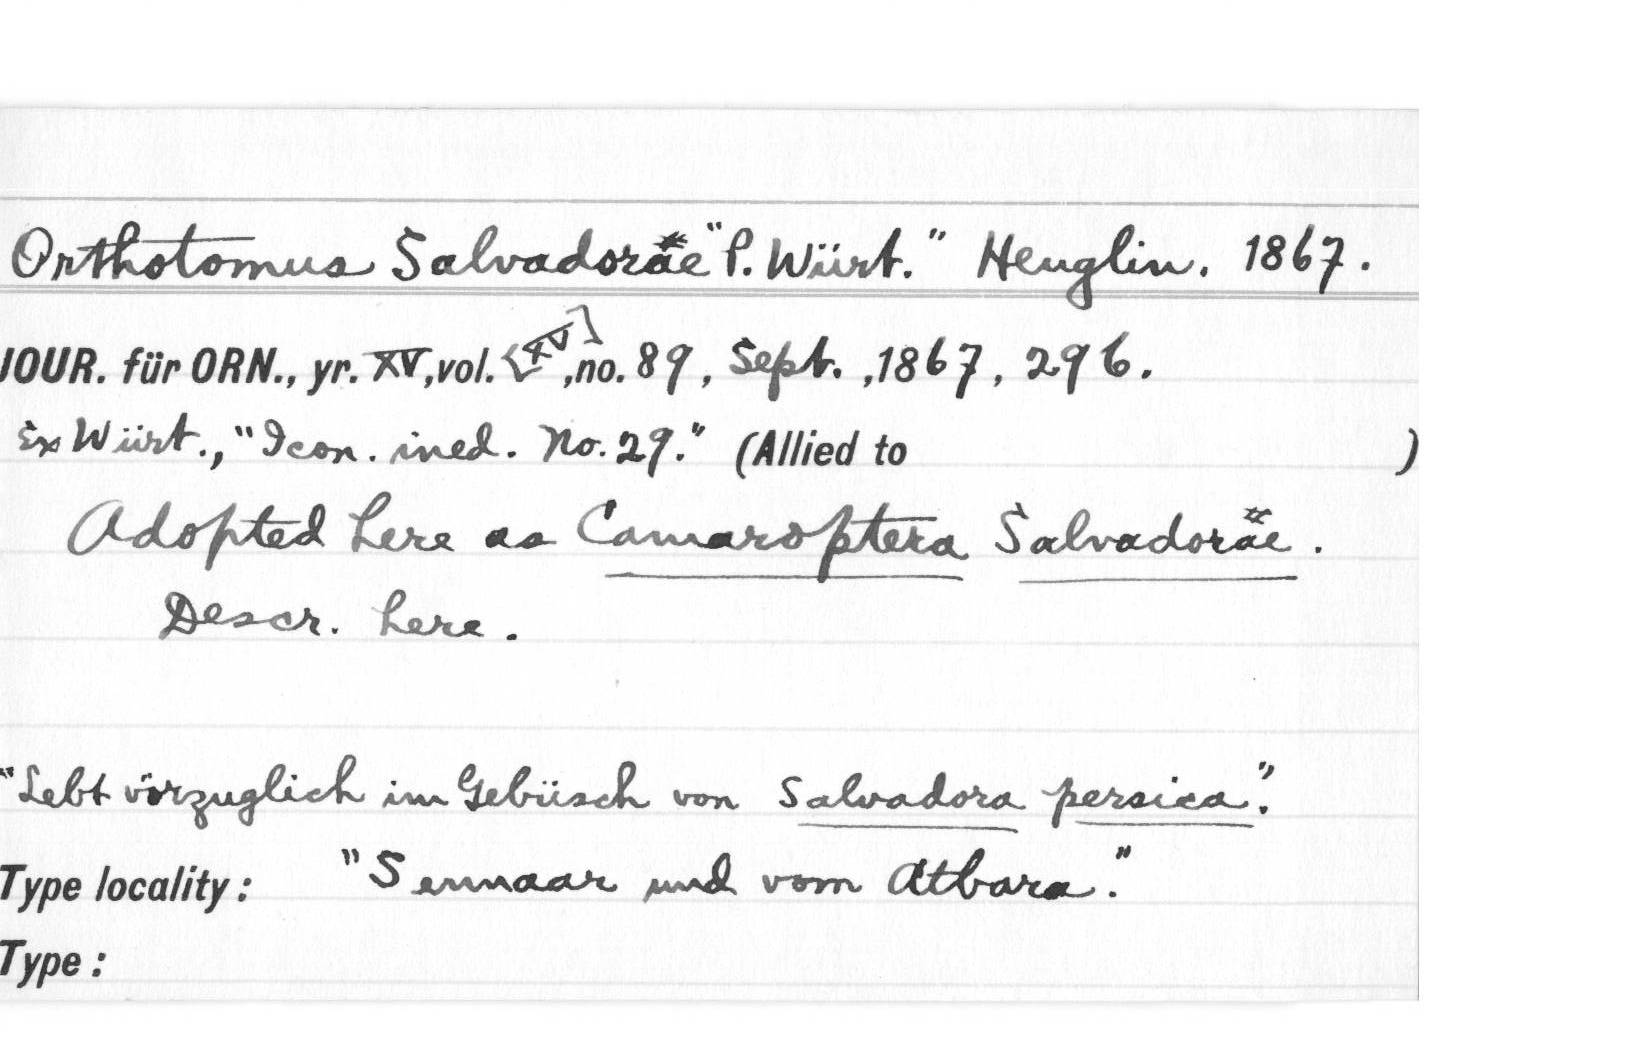 Orthotomus Salvadoräe "P. Würt." Heuglin. 1867.
JOUR. für ORN., yr. XV, vol. [XV], no. 89, Sept. ,1867, 296.
Ex Würt., "Icon. ined. No. 29." (Allied to )
Adopted here as Camaroptera Salvadoräe.
Descr. here.
"Lebt vörzuglich im Gebüsch von Salvadora persica".
Type locality: "Sennaar und vom Atbara."
Type: